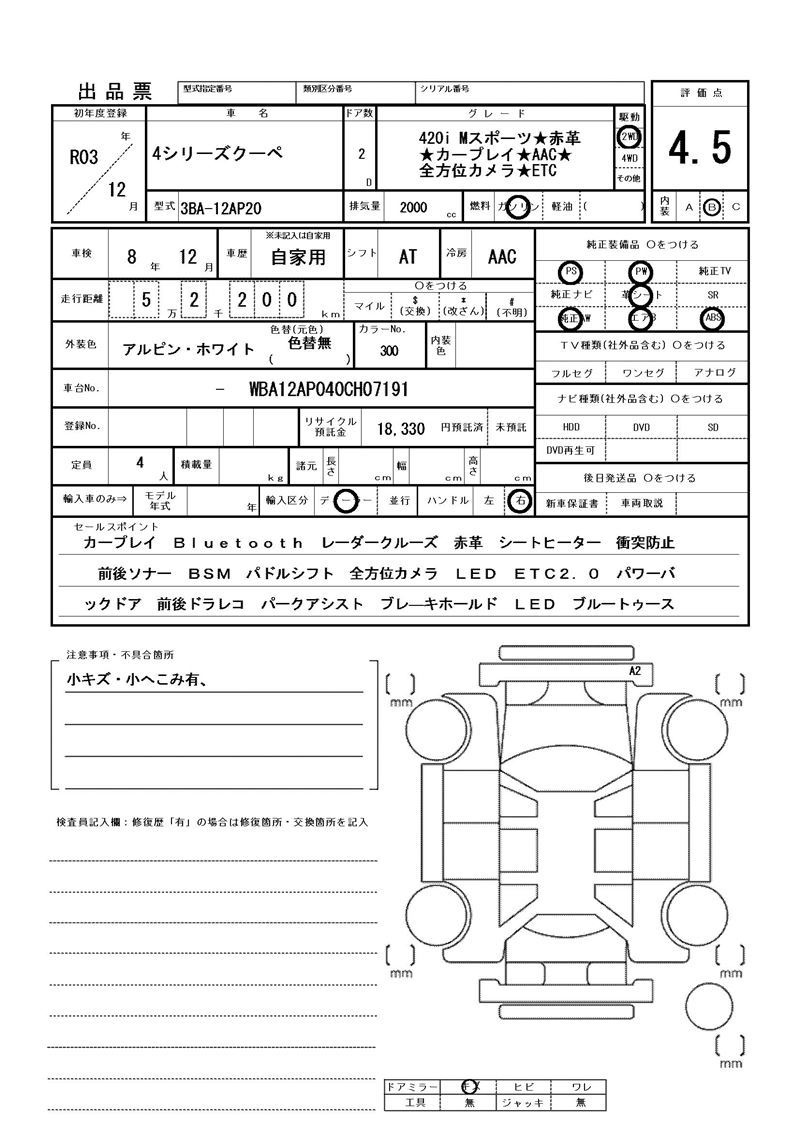 出品票 型式指定番号 類別区分番号 シリアル番号
評価点
4.5
内装 A B C
初年度登録 車名 ドア数 グレード 駆動
R03 年 12 月
4シリーズクーペ
2 D
420i Mスポーツ★赤革
★カープレイ★AAC★
全方位カメラ★ETC
2WD
4WD
その他
型式 3BA-12AP20 排気量 2000 cc 燃料 ガソリン 軽油 ( )
車検 8 年 12 月 車歴 ※未記入は自家用 自家用 シフト AT 冷房 AAC
走行距離 5 万 2 千 2 0 0 km
○をつける
マイル $(交換) *(改ざん) #(不明)
外装色 アルピン・ホワイト 色替(元色) 色替無 ( ) カラーNo. 300 内装色
車台No. − WBA12AP040CH07191
登録No. リサイクル預託金 18,330 円預託済 未預託
定員 4 人 積載量 kg 諸元 長さ cm 幅 cm 高さ cm
輸入車のみ⇒ モデル年式 年 輸入区分 ディーラー 並行 ハンドル 左 右
純正装備品 ○をつける
PS PW 純正TV
純正ナビ 革シート SR
純正AW エアB ABS
TV種類(社外品含む) ○をつける
フルセグ ワンセグ アナログ
ナビ種類(社外品含む) ○をつける
HDD DVD SD
DVD再生可
後日発送品 ○をつける
新車保証書 車両取説
セールスポイント
カープレイ Bluetooth レーダークルーズ 赤革 シートヒーター 衝突防止
前後ソナー BSM パドルシフト 全方位カメラ LED ETC2.0 パワーバ
ックドア 前後ドラレコ パークアシスト ブレ―キホールド LED ブルートゥース
注意事項・不具合箇所
小キズ・小へこみ有、
検査員記入欄：修復歴「有」の場合は修復箇所・交換箇所を記入
A2
mm
mm
mm
mm
mm
ドアミラー キズ ヒビ ワレ
工具 無 ジャッキ 無